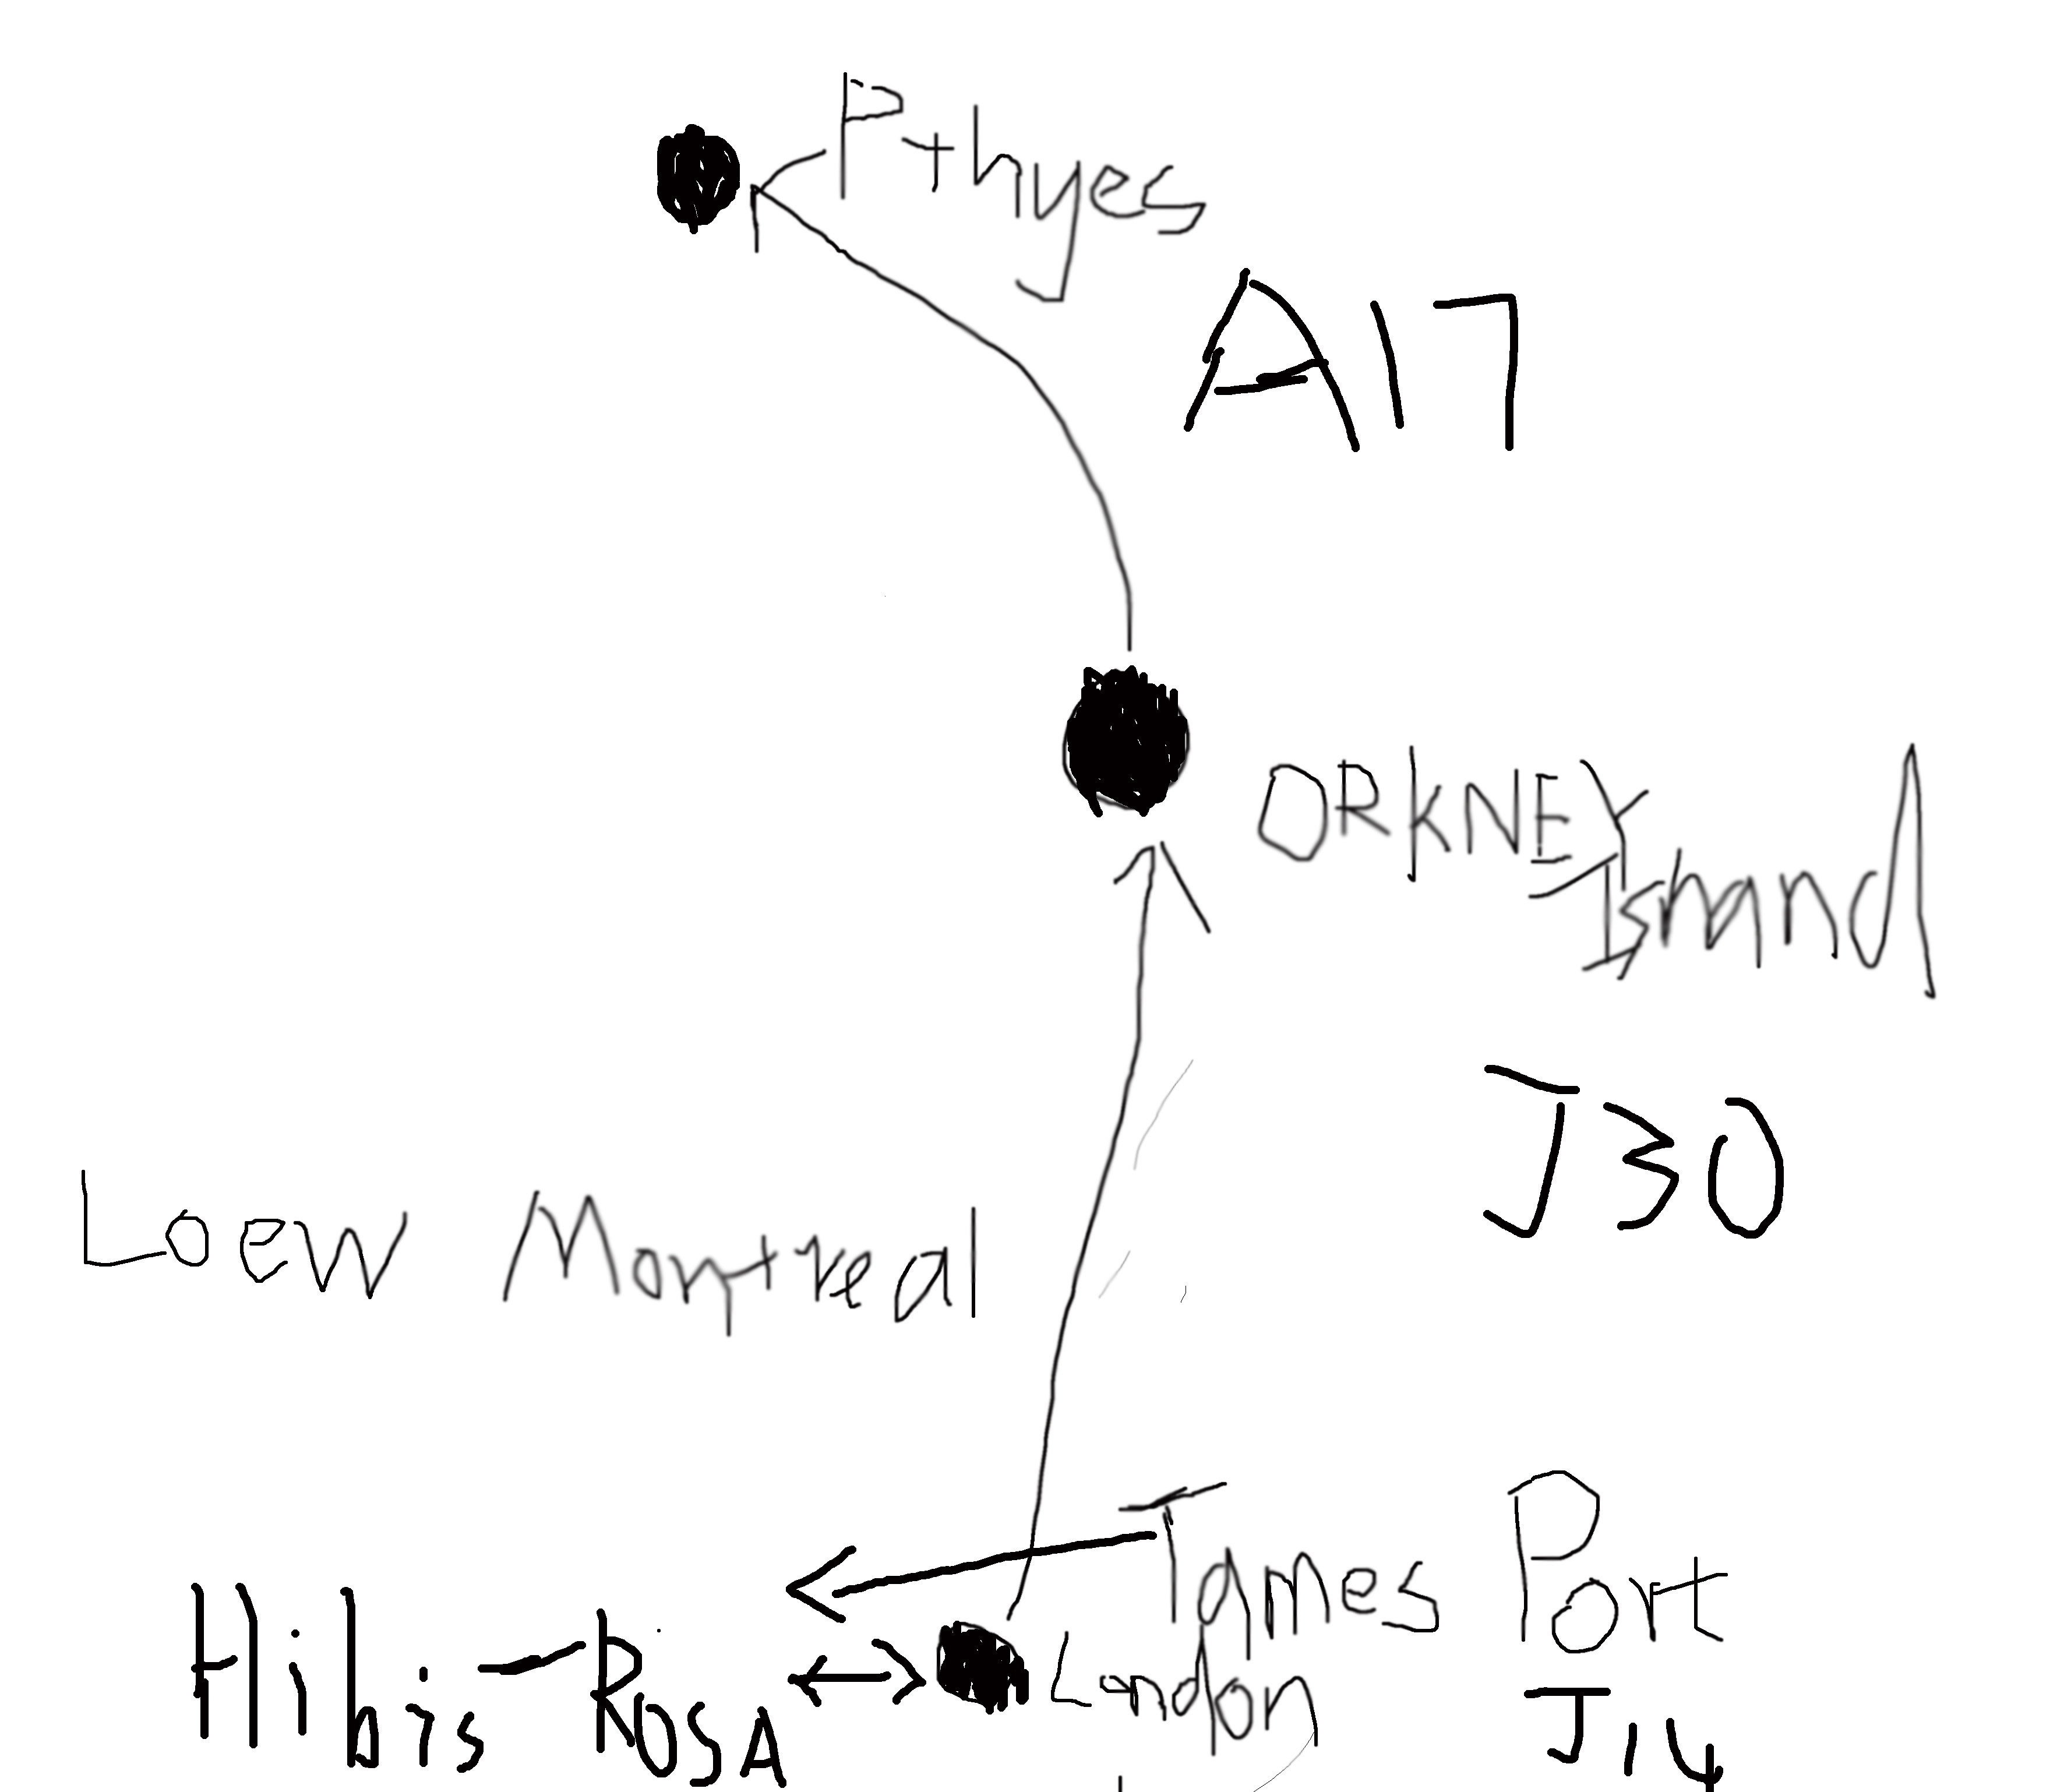 Pthyes
A17
ORKNEY
Island
J30
Loew Montreal
Tames Port
Hibis-ROSA
London
J14